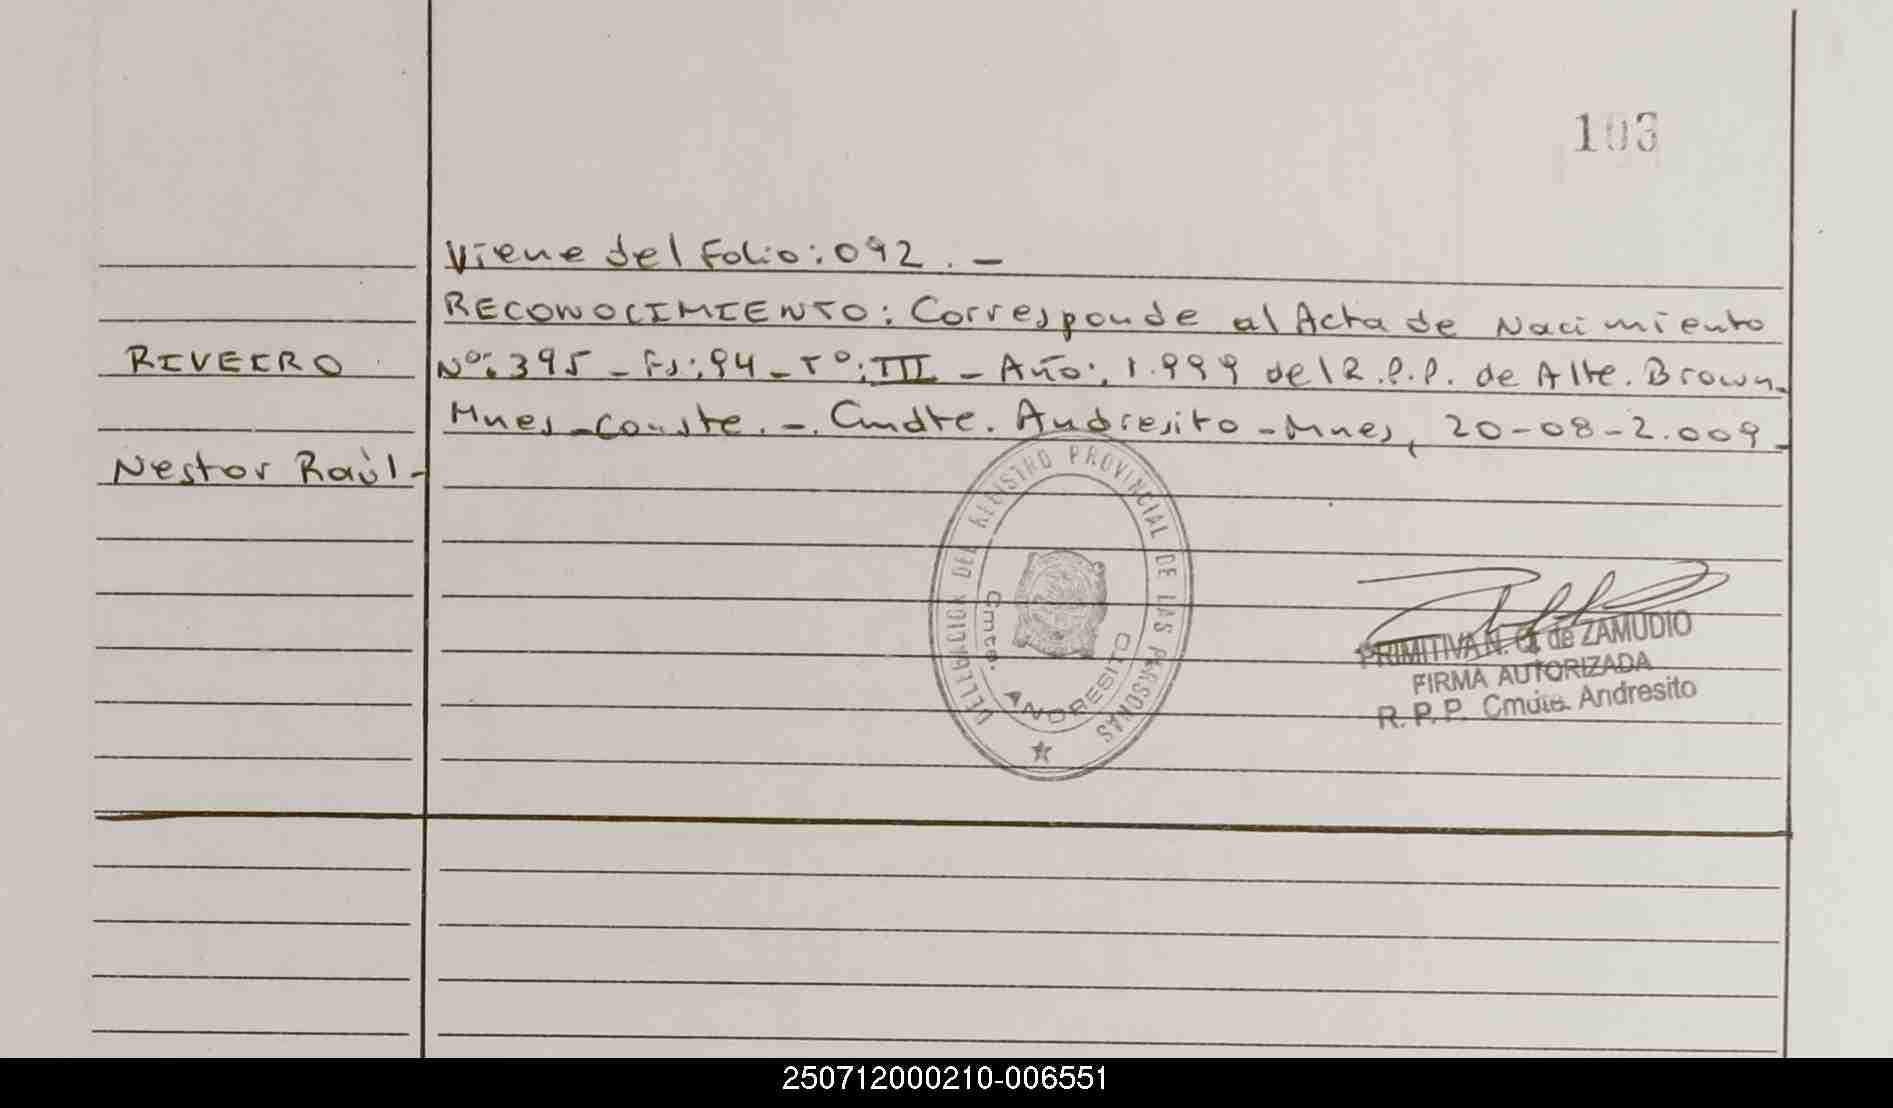 103
Viene del Folio: 092. -
RECONOCIMIENTO: Corresponde al Acta de Nacimiento
RIVEIRO
Nº: 395 - Fs: 94 - Tº: III - Año: 1.999 del R.P.P. de Alte. Brown.
Mnes - Conste. -. Cmdte. Andresito - Mnes, 20-08-2.009-
Nestor Raúl -
DELEGACION DEL REGISTRO PROVINCIAL DE LAS PERSONAS
Cmte. ANDRESITO
PRIMITIVA N. G. de ZAMUDIO
FIRMA AUTORIZADA
R. P. P. Cmdte. Andresito
250712000210-006551